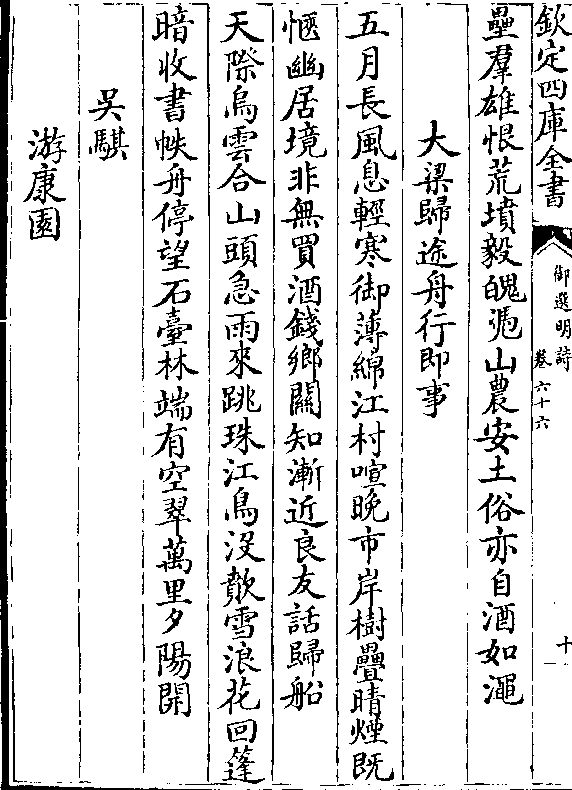 欽定四庫全書
御選明詩
卷六十六
十
壘羣雄恨荒墳毅魄慿山農安土俗亦自酒如澠
大梁歸途舟行即事
五月長風息輕寒御薄綿江村喧晚市岸樹疊晴煙既
愜幽居境非無買酒錢鄉關知漸近良友話歸船
天際烏雲合山頭急雨來跳珠江鳥沒歕雪浪花回篷
暗收書帙舟停望石臺林端有空翠萬里夕陽開
吳騏
游康園